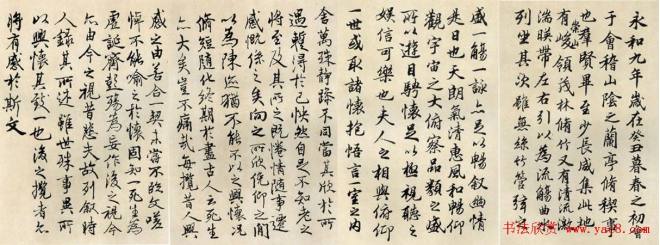 永和九年歲在癸丑暮春之初會
于會稽山陰之蘭亭脩稧事
也群賢畢至少長咸集此地
有崇山峻領茂林脩竹又有清流激
湍暎帶左右引以為流觴曲水
列坐其次雖無絲竹管弦之
盛一觴一詠亦足以暢叙幽情
是日也天朗氣清惠風和暢仰
觀宇宙之大俯察品類之盛
所以遊目騁懷足以極視聽之
娛信可樂也夫人之相與俯仰
一世或取諸懷抱悟言一室之内
舍萬殊靜躁不同當其欣於所
遇暫得於己怏然自足不知老之
將至及其所之既惓情隨事遷
感慨係之矣向之所欣俛仰之閒
以為陳迹猶不能不以之興懷況
脩短隨化終期於盡古人云死生
亦大矣豈不痛哉每攬昔人興
感之由若合一契未嘗不臨文嗟
悼不能喻之於懷固知一死生為
虛誕齊彭殤為妄作後之視今
亦由今之視昔悲夫故列叙時
人錄其所述雖世殊事異所
以興懷其致一也後之攬者亦
將有感於斯文
书法欣赏
www.yac8.com